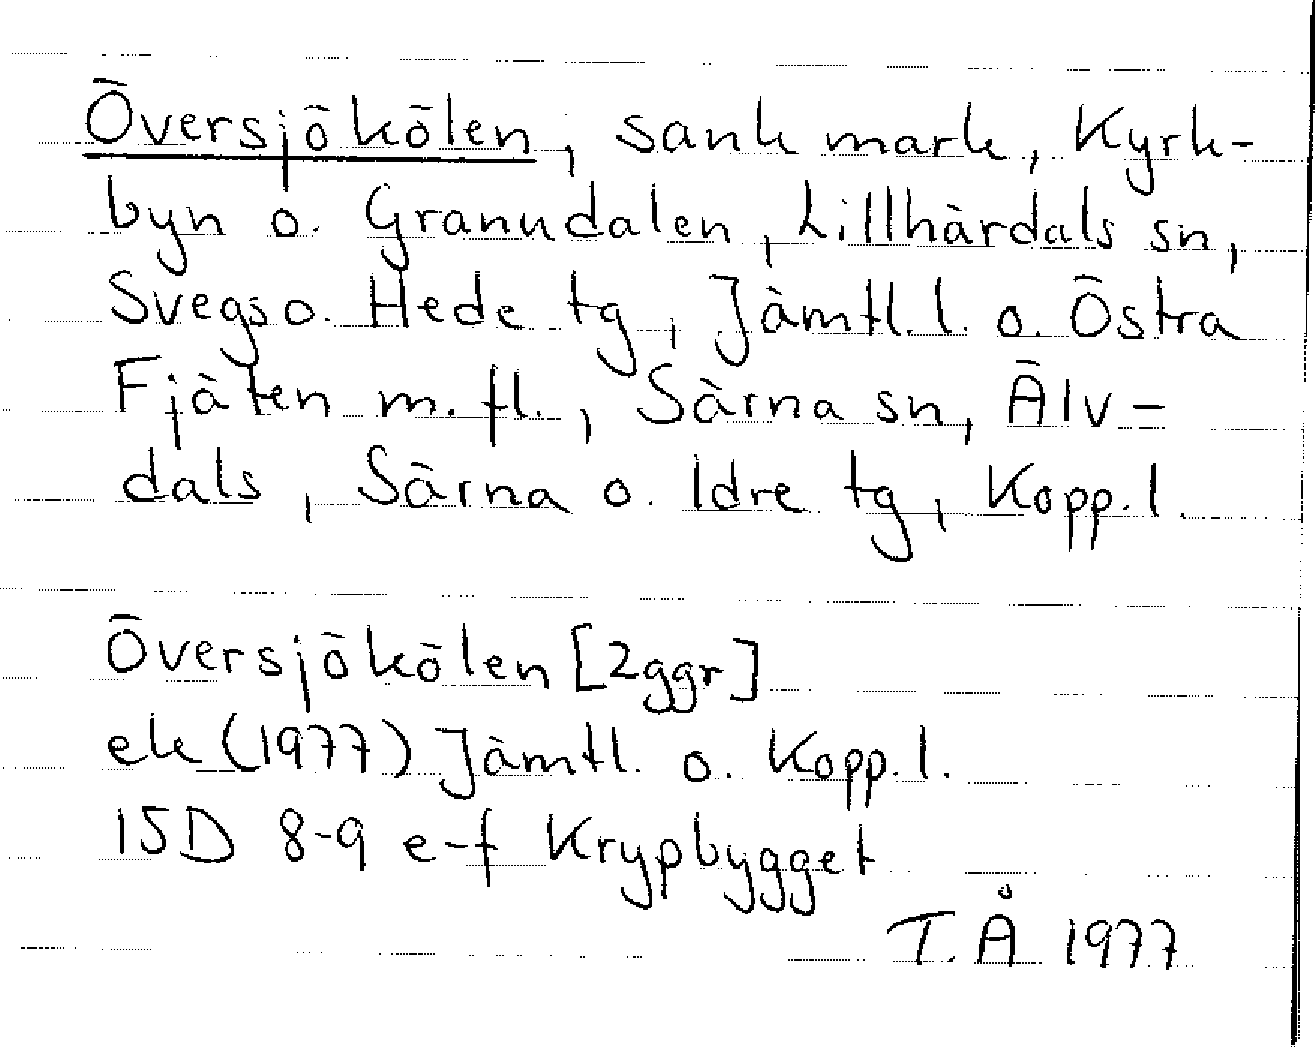 Översjökölen, sank mark, Kyrk-
byn o. Granndalen, Lillhärdals sn,
Svegs o. Hede tg, Jämtl. l. o. Östra
Fjäten m. fl., Särna sn, Älv-
dals, Särna o. Idre tg, Kopp. l.
Översjökölen [2ggr]
ek (1977) Jämtl. o. Kopp. l.
15D 8-9 e-f Krypbygget
T. Å 1977